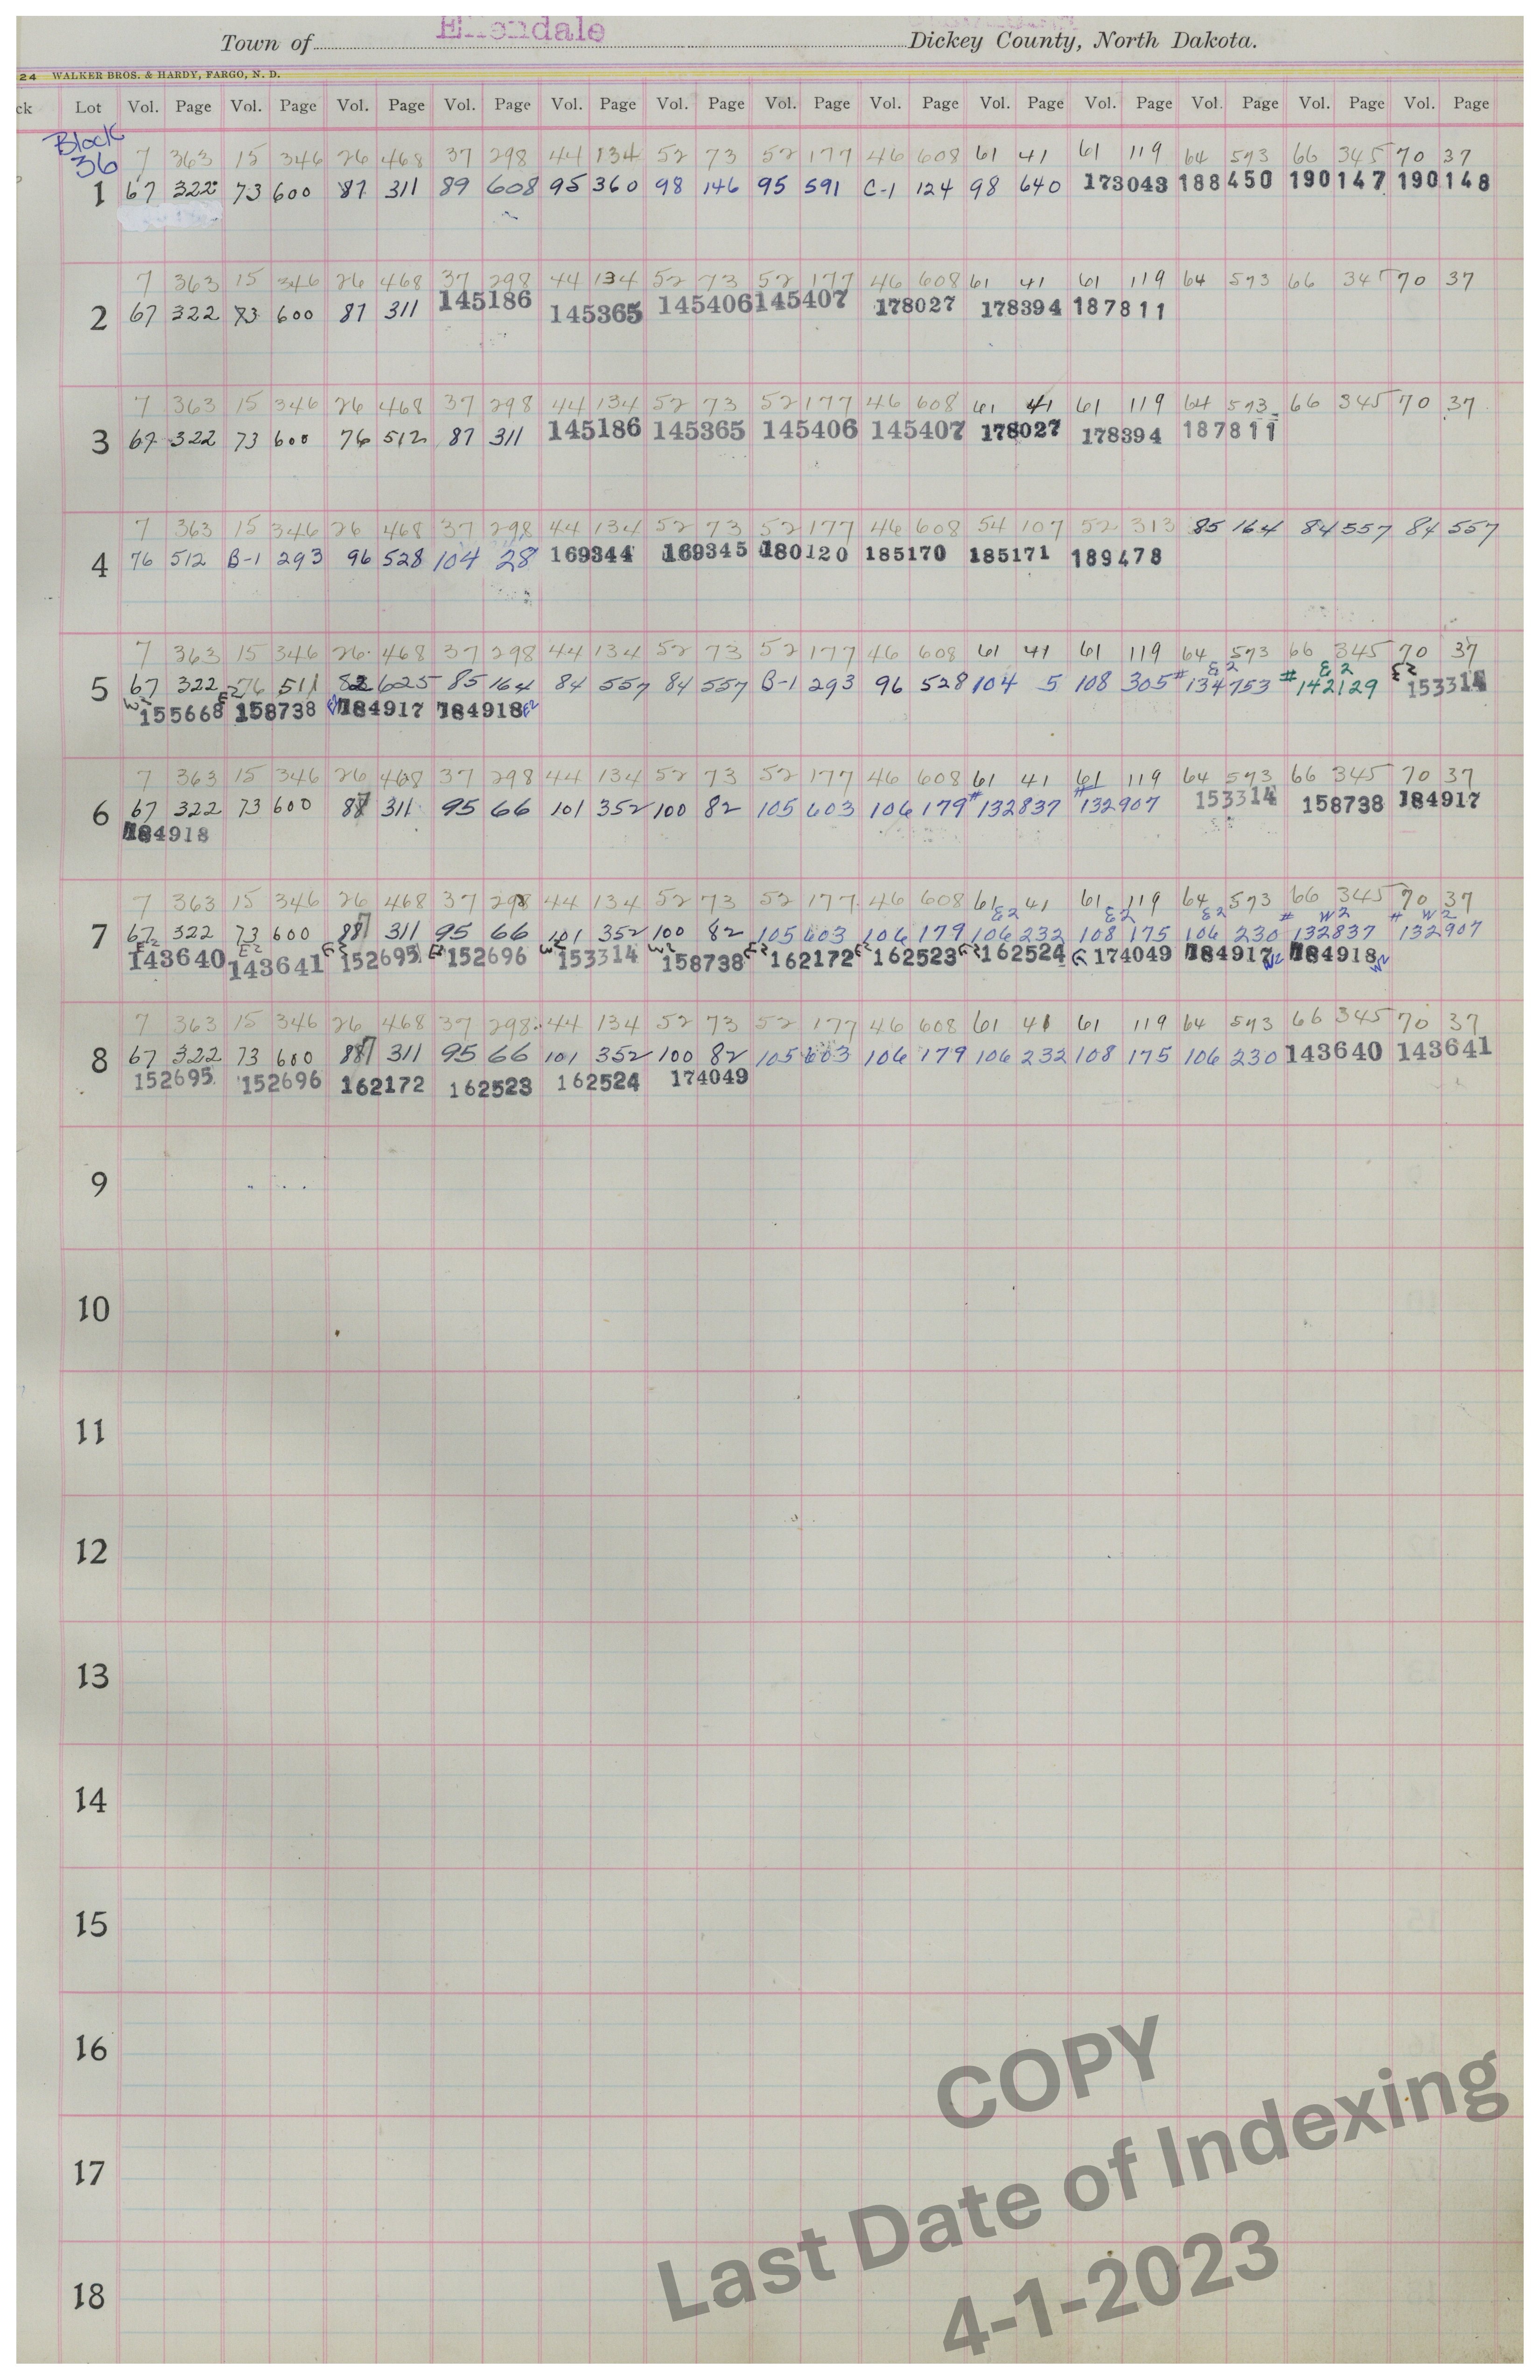 Town of Ellendale Dickey County, North Dakota.
24 WALKER BROS. & HARDY, FARGO, N. D.
ck Lot Vol. Page Vol. Page Vol. Page Vol. Page Vol. Page Vol. Page Vol. Page Vol. Page Vol. Page Vol. Page Vol. Page Vol. Page Vol. Page
Block
36 7 363 15 346 26 468 37 298 44 134 52 73 52 177 46 608 61 41 61 119 64 573 66 345 70 37
1 67 322 73 600 87 311 89 608 95 360 98 146 95 591 C-1 124 98 640 173043 188450 190147 190148
7 363 15 346 26 468 37 298 44 134 52 73 52 177 46 608 61 41 61 119 64 573 66 345 70 37
2 67 322 73 600 87 311 145186 145365 145406 145407 178027 178394 187811
7 363 15 346 26 468 37 298 44 134 52 73 52 177 46 608 61 41 61 119 64 573 66 345 70 37
3 67 322 73 600 76 512 87 311 145186 145365 145406 145407 178027 178394 187811
7 363 15 346 26 468 37 298 44 134 52 73 52 177 46 608 54 107 52 313 85 164 84 557 84 557
4 76 512 B-1 293 96 528 104 28 169344 169345 180120 185170 185171 189478
7 363 15 346 26 468 37 298 44 134 52 73 52 177 46 608 61 41 61 119 64 573 66 345 70 37
5 67 322 E2 76 511 82 625 85 164 84 557 84 557 B-1 293 96 528 104 5 108 305 # E2 134753 # E2 142129 E2 153314
W2 155668 E2 158738 184917 184918 E2
7 363 15 346 26 468 37 298 44 134 52 73 52 177 46 608 61 41 61 119 64 573 66 345 70 37
6 67 322 73 600 87 311 95 66 101 352 100 82 105 603 106 179 #132837 #132907 153314 158738 184917
184918
7 363 15 346 26 468 37 298 44 134 52 73 52 177 46 608 61 41 61 119 64 573 66 345 70 37
7 67 322 73 600 87 311 95 66 101 352 100 82 105 603 106 179 E2 106 232 E2 108 175 E2 106 230 # W2 132837 # W2 132907
E2 143640 E2 143641 E2 152695 E2 152696 W2 153314 W2 158738 E2 162172 E2 162523 E2 162524 174049 184917 W2 184918 W2
7 363 15 346 26 468 37 298 44 134 52 73 52 177 46 608 61 41 61 119 64 573 66 345 70 37
8 67 322 73 600 87 311 95 66 101 352 100 82 105 603 106 179 106 232 108 175 106 230 143640 143641
152695 152696 162172 162523 162524 174049
9
10
11
12
13
14
15
16
17
18
COPY
Last Date of Indexing
4-1-2023